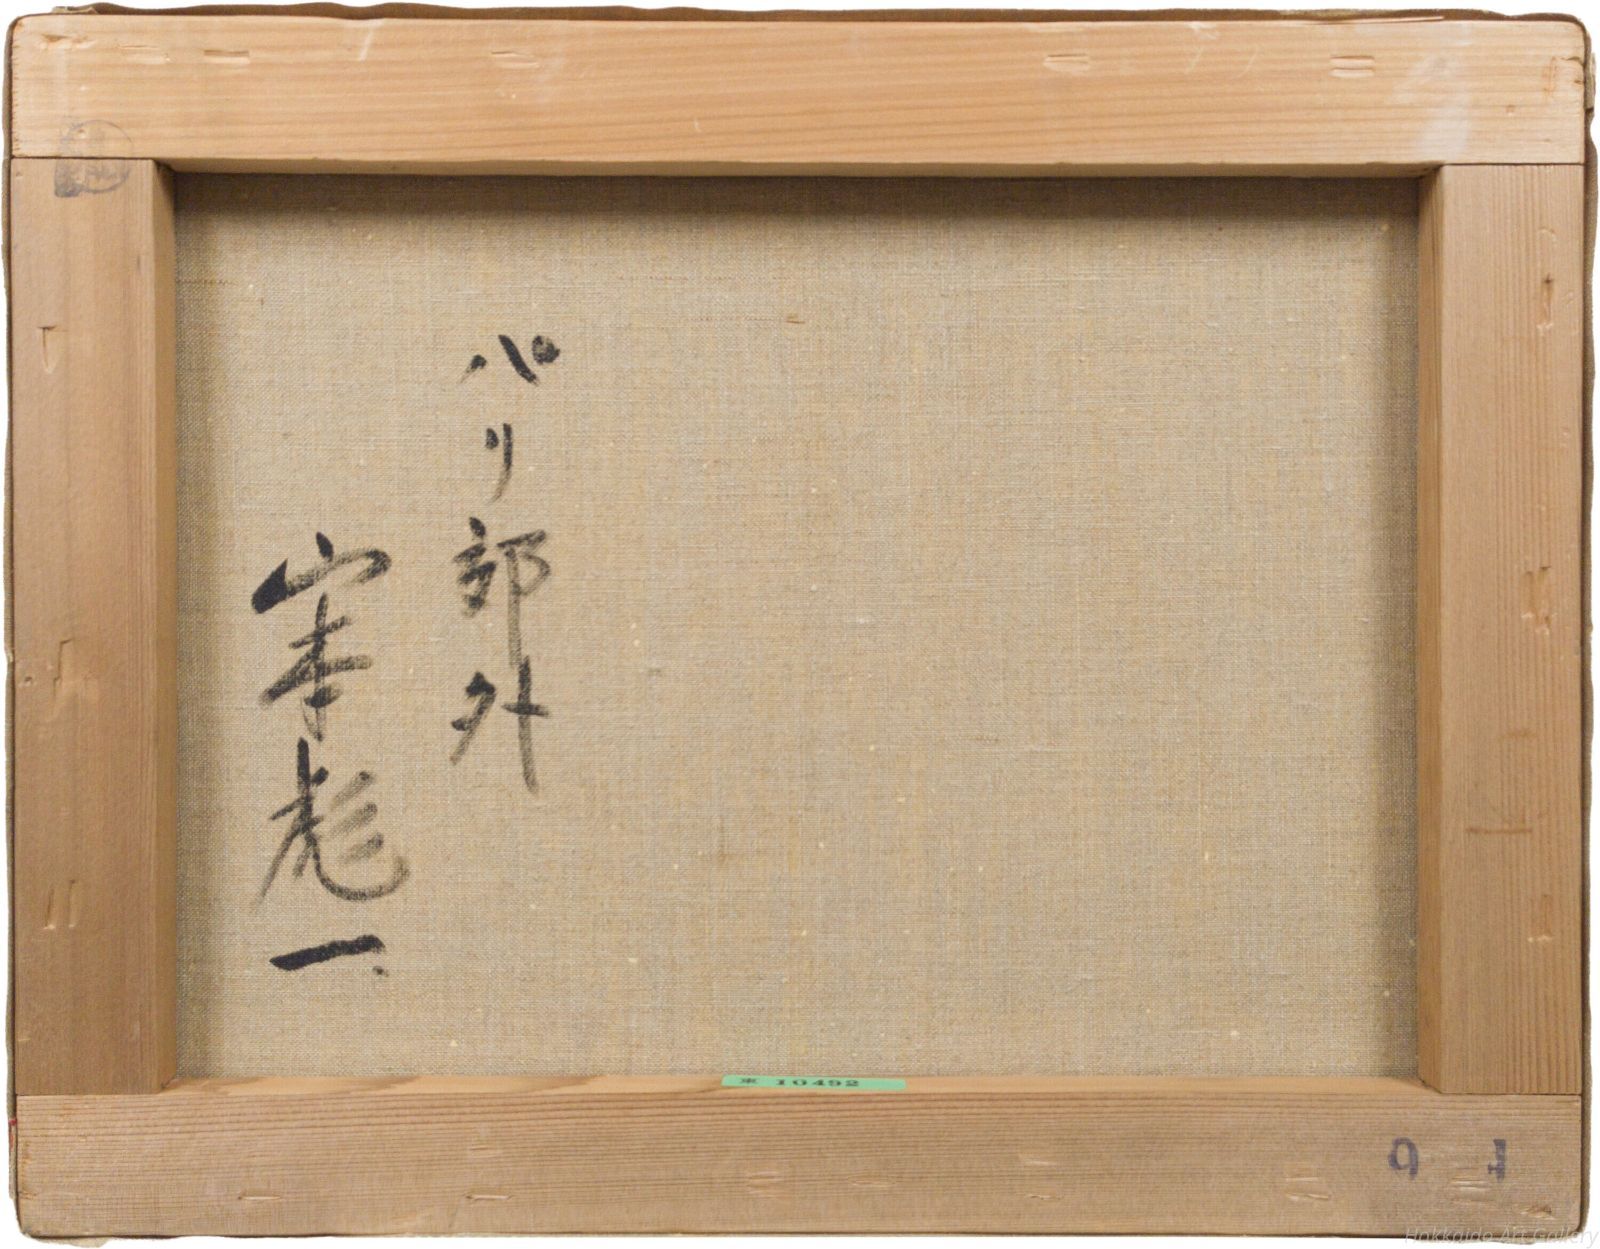 パリ郊外
山本彪一
東 10492
Hokkaido Art Gallery